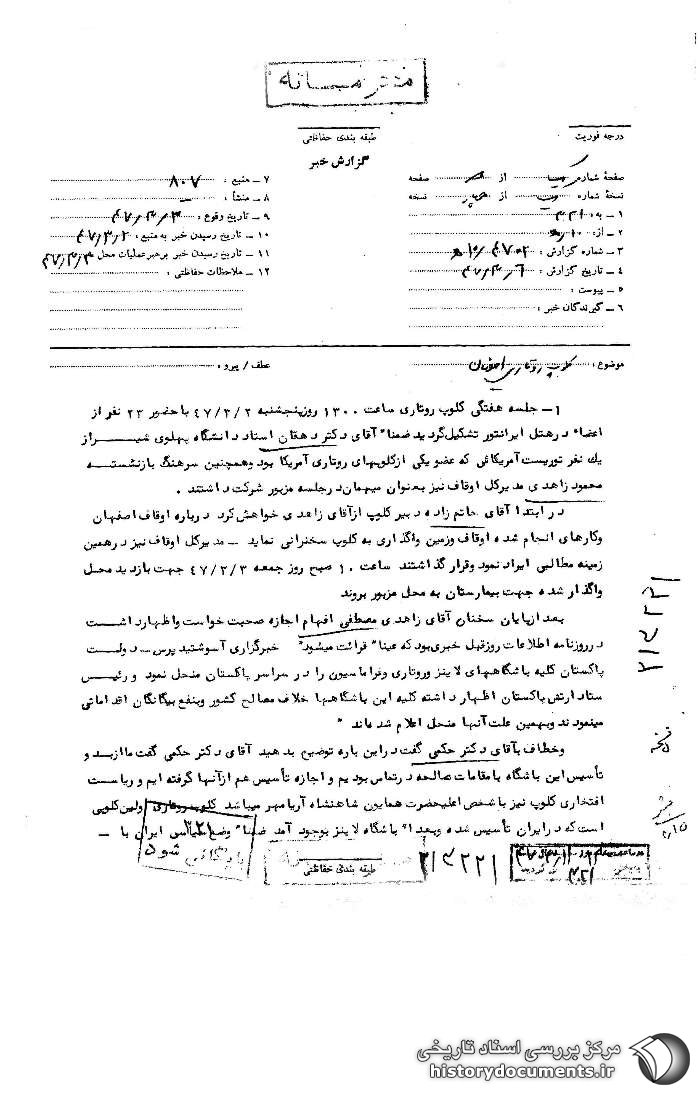 محرمانه
درجه فوریت
طبقه بندی حفاظتی
گزارش خبر
صفحهٔ شماره یک از صفحه
نسخهٔ شماره از نسخه
۱ ـ به: ۳۴۱
۲ ـ از: ۱۰ ه
۳ ـ شماره گزارش:
۴ ـ تاریخ گزارش: ۴۷٫۳٫۶
۵ ـ پیوست:
۶ ـ گیرندگان خبر:
۷ ـ منبع: ۸۰۷
۸ ـ منشأ:
۹ ـ تاریخ وقوع: ۴۷٫۳٫۳
۱۰ ـ تاریخ رسیدن خبر به منبع: ۴۷٫۳٫۲
۱۱ ـ تاریخ رسیدن خبر برهبر عملیات محل ۴۷٫۳٫۴
۱۲ ـ ملاحظات حفاظتی:
موضوع: کلوپ روتاری اصفهان
عطف / پیرو:
۱ـ جلسه هفتگی کلوپ روتاری ساعت ۱۳۰۰ روزپنجشنبه ۴۷/۳/۲ باحضور ۲۳ نفر از
اعضاء درهتل ایرانتور تشکیل گردید ضمنا" آقای دکتر دهقان استاد دانشگاه پهلوی شیراز
یك نفر توریست آمریکائی که عضو یکی ازکلوپهای روتاری آمریکا بود وهمچنین سرهنگ بازنشسته
محمود زاهدی مدیرکل اوقاف نیز بعنوان میهمان درجلسه مزبور شرکت داشتند .
در ابتدا آقای حاتم زاده دبیر کلوپ ازآقای زاهدی خواهش کرد درباره اوقاف اصفهان
وکارهای انجام شده اوقاف وزمین واگذاری به کلوپ سخنرانی نماید ـ مدیرکل اوقاف نیز درهمین
زمینه مطالبی ایراد نمود وقرار گذاشتند ساعت ۱۰ صبح روز جمعه ۴۷/۳/۳ جهت بازدید محل
واگذار شده جهت بیمارستان به محل مزبور بروند
بعد ازپایان سخنان آقای زاهدی مصطفی افهام اجازه صحبت خواست واظهارداشت
درروزنامه اطلاعات روزقبل خبری بود که عینا" قرائت میشود" خبرگزاری آسوشیتد پرس ـ دولت
پاکستان کلیه باشگاههای لاینز وروتاری وفراماسیون را در سراسر پاکستان منحل نمود و رئیس
ستاد ارتش پاکستان اظهار داشته کلیه این باشگاهها خلاف مصالح کشور وبنفع بیگانگان اقداماتی
مینمودند وبهمین علت آنها منحل اعلام شده اند "
وخطاب بآقای دکتر حکمی گفت دراین باره توضیح بدهید آقای دکتر حکمی گفت ماازبد و
تأسیس این باشگاه بامقامات صالحه درتماس بودیم و اجازه تأسیس هم ازآنها گرفته ایم و ریاست
افتخاری کلوپ نیز باشخص اعلیحضرت همایون شاهنشاه آریامهر میباشد کلوپ روتاری اولین کلوپی
است که درایران تأسیس شده وبعدا" باشگاه لاینز بوجود آمد ضمنا" وضع سیاسی ایران با ـ
بایگانی شود
طبقه بندی حفاظتی
۳۱۴۲۲۱
مرکز بررسی اسناد تاریخی
historydocuments.ir